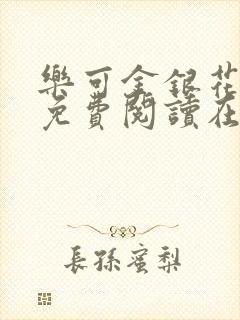 樂可金銀花
免費閱讀在
長孫蜜梨